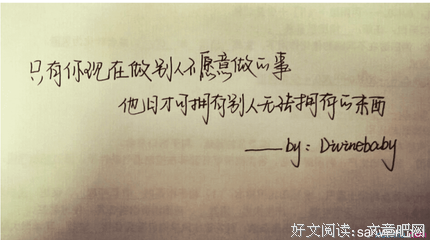 只有你现在做别人不愿意做的事
他日才可拥有别人无法拥有的东西
——by：Divinebaby
好文阅读：文章吧网
sanwen.net